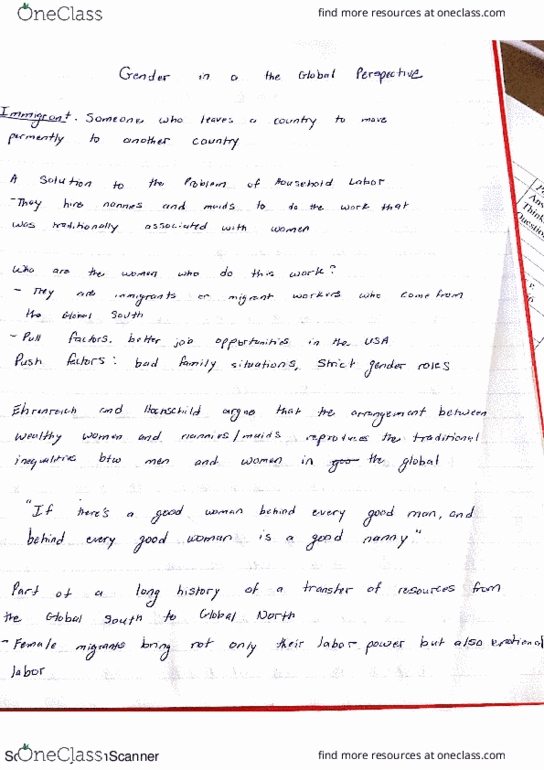 OneClass
find more resources at oneclass.com
Gender in a the Global Perspective
Immigrant. Someone who leaves a country to move
permently to another country
A Solution to the Problem of Household Labor
- They hire nannies and maids to do the work that
was traditionally associated with women
Who are the women who do this work?
- They are immigrants or migrant workers who come from
the Global South
- Pull factors. better job opportunities in the USA
Push factors: bad family situations, strict gender roles
Ehrenreich and Hochschild argue that the arrangement between
wealthy women and nannies/maids reproduces the traditional
inequalities btw men and women in the global
"If there's a good woman behind every good man, and
behind every good woman is a good nanny"
Part of a long history of a transfer of resources from
the Global South to Global North
- Female migrants bring not only their labor power but also emotional
labor
OneClass
Scanner
find more resources at oneclass.com